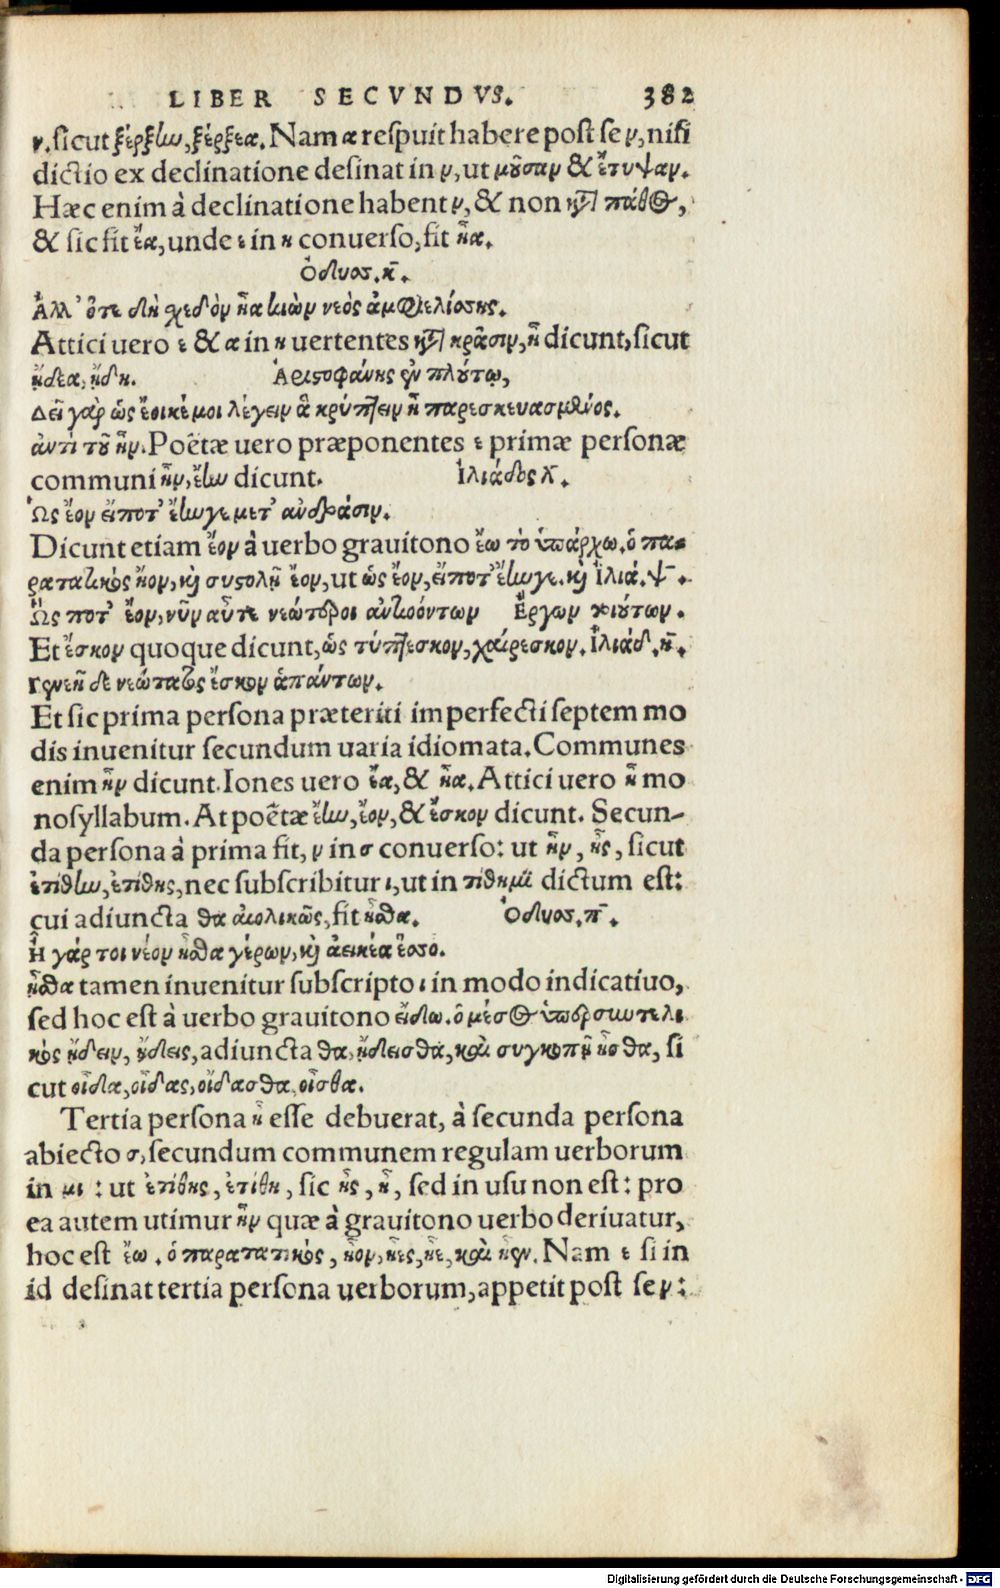 LIBER SECVNDVS. 382
ν. sicut ξέρξην, ξέρξεα. Nam α respuit habere post se ν, nisi
dictio ex declinatione desinat in ν, ut μοῦσαν & ἔτυψαν.
Hæc enim à declinatione habent ν, & non κτ̀ πάθος,
& sic fit ἔα, unde ε in η conuerso, fit ἦα.
Ὀδυσ. κ̄.
Ἀλλ' ὅτε δὴ σχεδὸν ἦα κιὼν νεὸς ἀμφιελίσσης.
Attici uero ε & α in η uertentes κτ̀ κρᾶσιν, ἦ dicunt, sicut
ᾔδεα, ᾔδη. Ἀριστοφάνης ἐν πλούτῳ,
Δεῖ γὰρ ὡς ἔοικέ μοι λέγειν ἃ κρύπτειν ἦ παρεσκευασμένος.
ἀντὶ τοῦ ἦν. Poëtæ uero præponentes ε primæ personæ
communi ἦν, ἔην dicunt. Ἰλιάδος λ̄.
Ὣς ἔον εἴποτ' ἔην γε μετ' ἀνδράσιν.
Dicunt etiam ἔον à uerbo grauitono ἔω τὸ ὑπάρχω. ὁ πα-
ρατατικὸς ἦον, κὶ συστολῇ ἔον, ut ὣς ἔον, εἴποτ' ἔην γε. κὶ ἰλιά. ψ̄.
Ὣς ποτ' ἔον, νῦν αὖτε νεώτεροι ἀντιοόντων Ἔργων τοιούτων.
Et ἔσκον quoque dicunt, ὡς τύπτεσκον, χαίρεσκον. Ἰλιάδ. η̄.
Γενεῇ δὲ νεώτατος ἔσκον ἁπάντων.
Et sic prima persona præteriti imperfecti septem mo
dis inuenitur secundum uaria idiomata. Communes
enim ἦν dicunt. Iones uero ἔα, & ἦα. Attici uero ἦ mo
nosyllabum. At poëtæ ἔην, ἔον, & ἔσκον dicunt. Secun-
da persona à prima fit, ν in σ conuerso: ut ἦν, ἦς, sicut
ἐτίθην, ἐτίθης, nec subscribitur ι, ut in τίθημι dictum est:
cui adiuncta θα αἰολικῶς, fit ἦσθα. Ὀδυσσ. π̄.
Ἦ γάρ τοι νέον ἦσθα γέρων, κὶ ἀεικέα ἕσσο.
ᾖσθα tamen inuenitur subscripto ι in modo indicatiuo,
sed hoc est à uerbo grauitono εἴδω. ὁ μέσος ὑπερσυντελι
κὸς ᾔδειν, ᾔδεις, adiuncta θα, ᾔδεισθα, καὶ συγκοπῇ ᾖσθα, si
cut οἶδα, οἶδας, οἴδασθα, οἶσθα.
Tertia persona ἦ esse debuerat, à secunda persona
abiecto σ, secundum communem regulam uerborum
in μι: ut ἐτίθης, ἐτίθη, sic ἦς, ἦ, sed in usu non est: pro
ea autem utimur ἦν quæ à grauitono uerbo deriuatur,
hoc est ἔω. ὁ παρατατικὸς, ἦον, ἦες, ἦε, καὶ ἦεν. Nam ε si in
id desinat tertia persona uerborum, appetit post se ν:
Digitalisierung gefördert durch die Deutsche Forschungsgemeinschaft - DFG